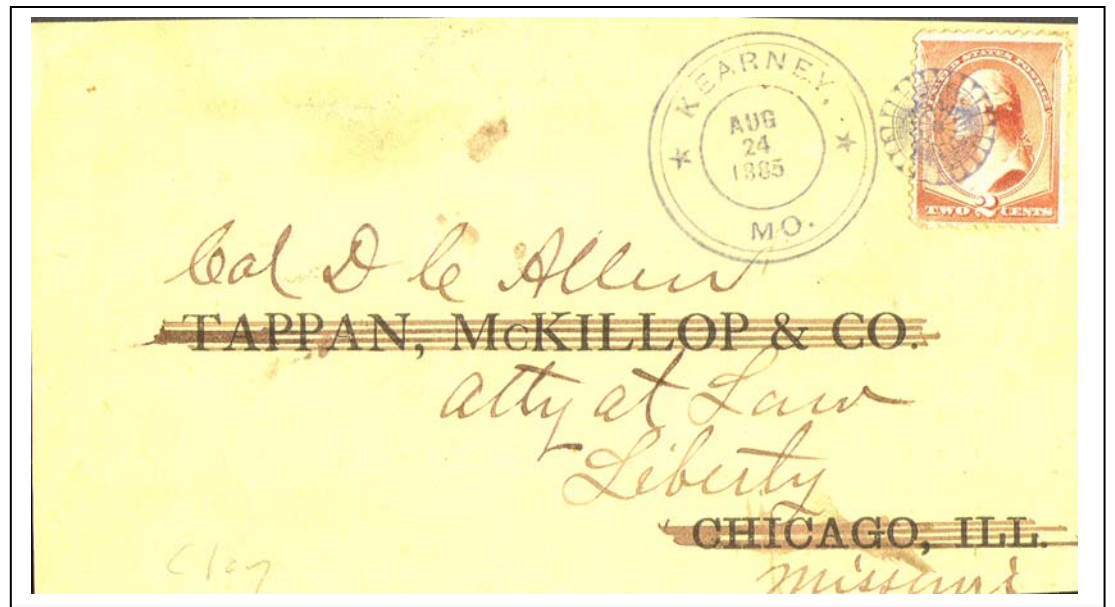 KEARNEY,
AUG
24
1885
MO.
UNITED STATES POSTAGE
TWO 2 CENTS
Col D C Allen
TAPPAN, McKILLOP & CO.
Atty at Law
Liberty
CHICAGO, ILL.
Missouri
Clay